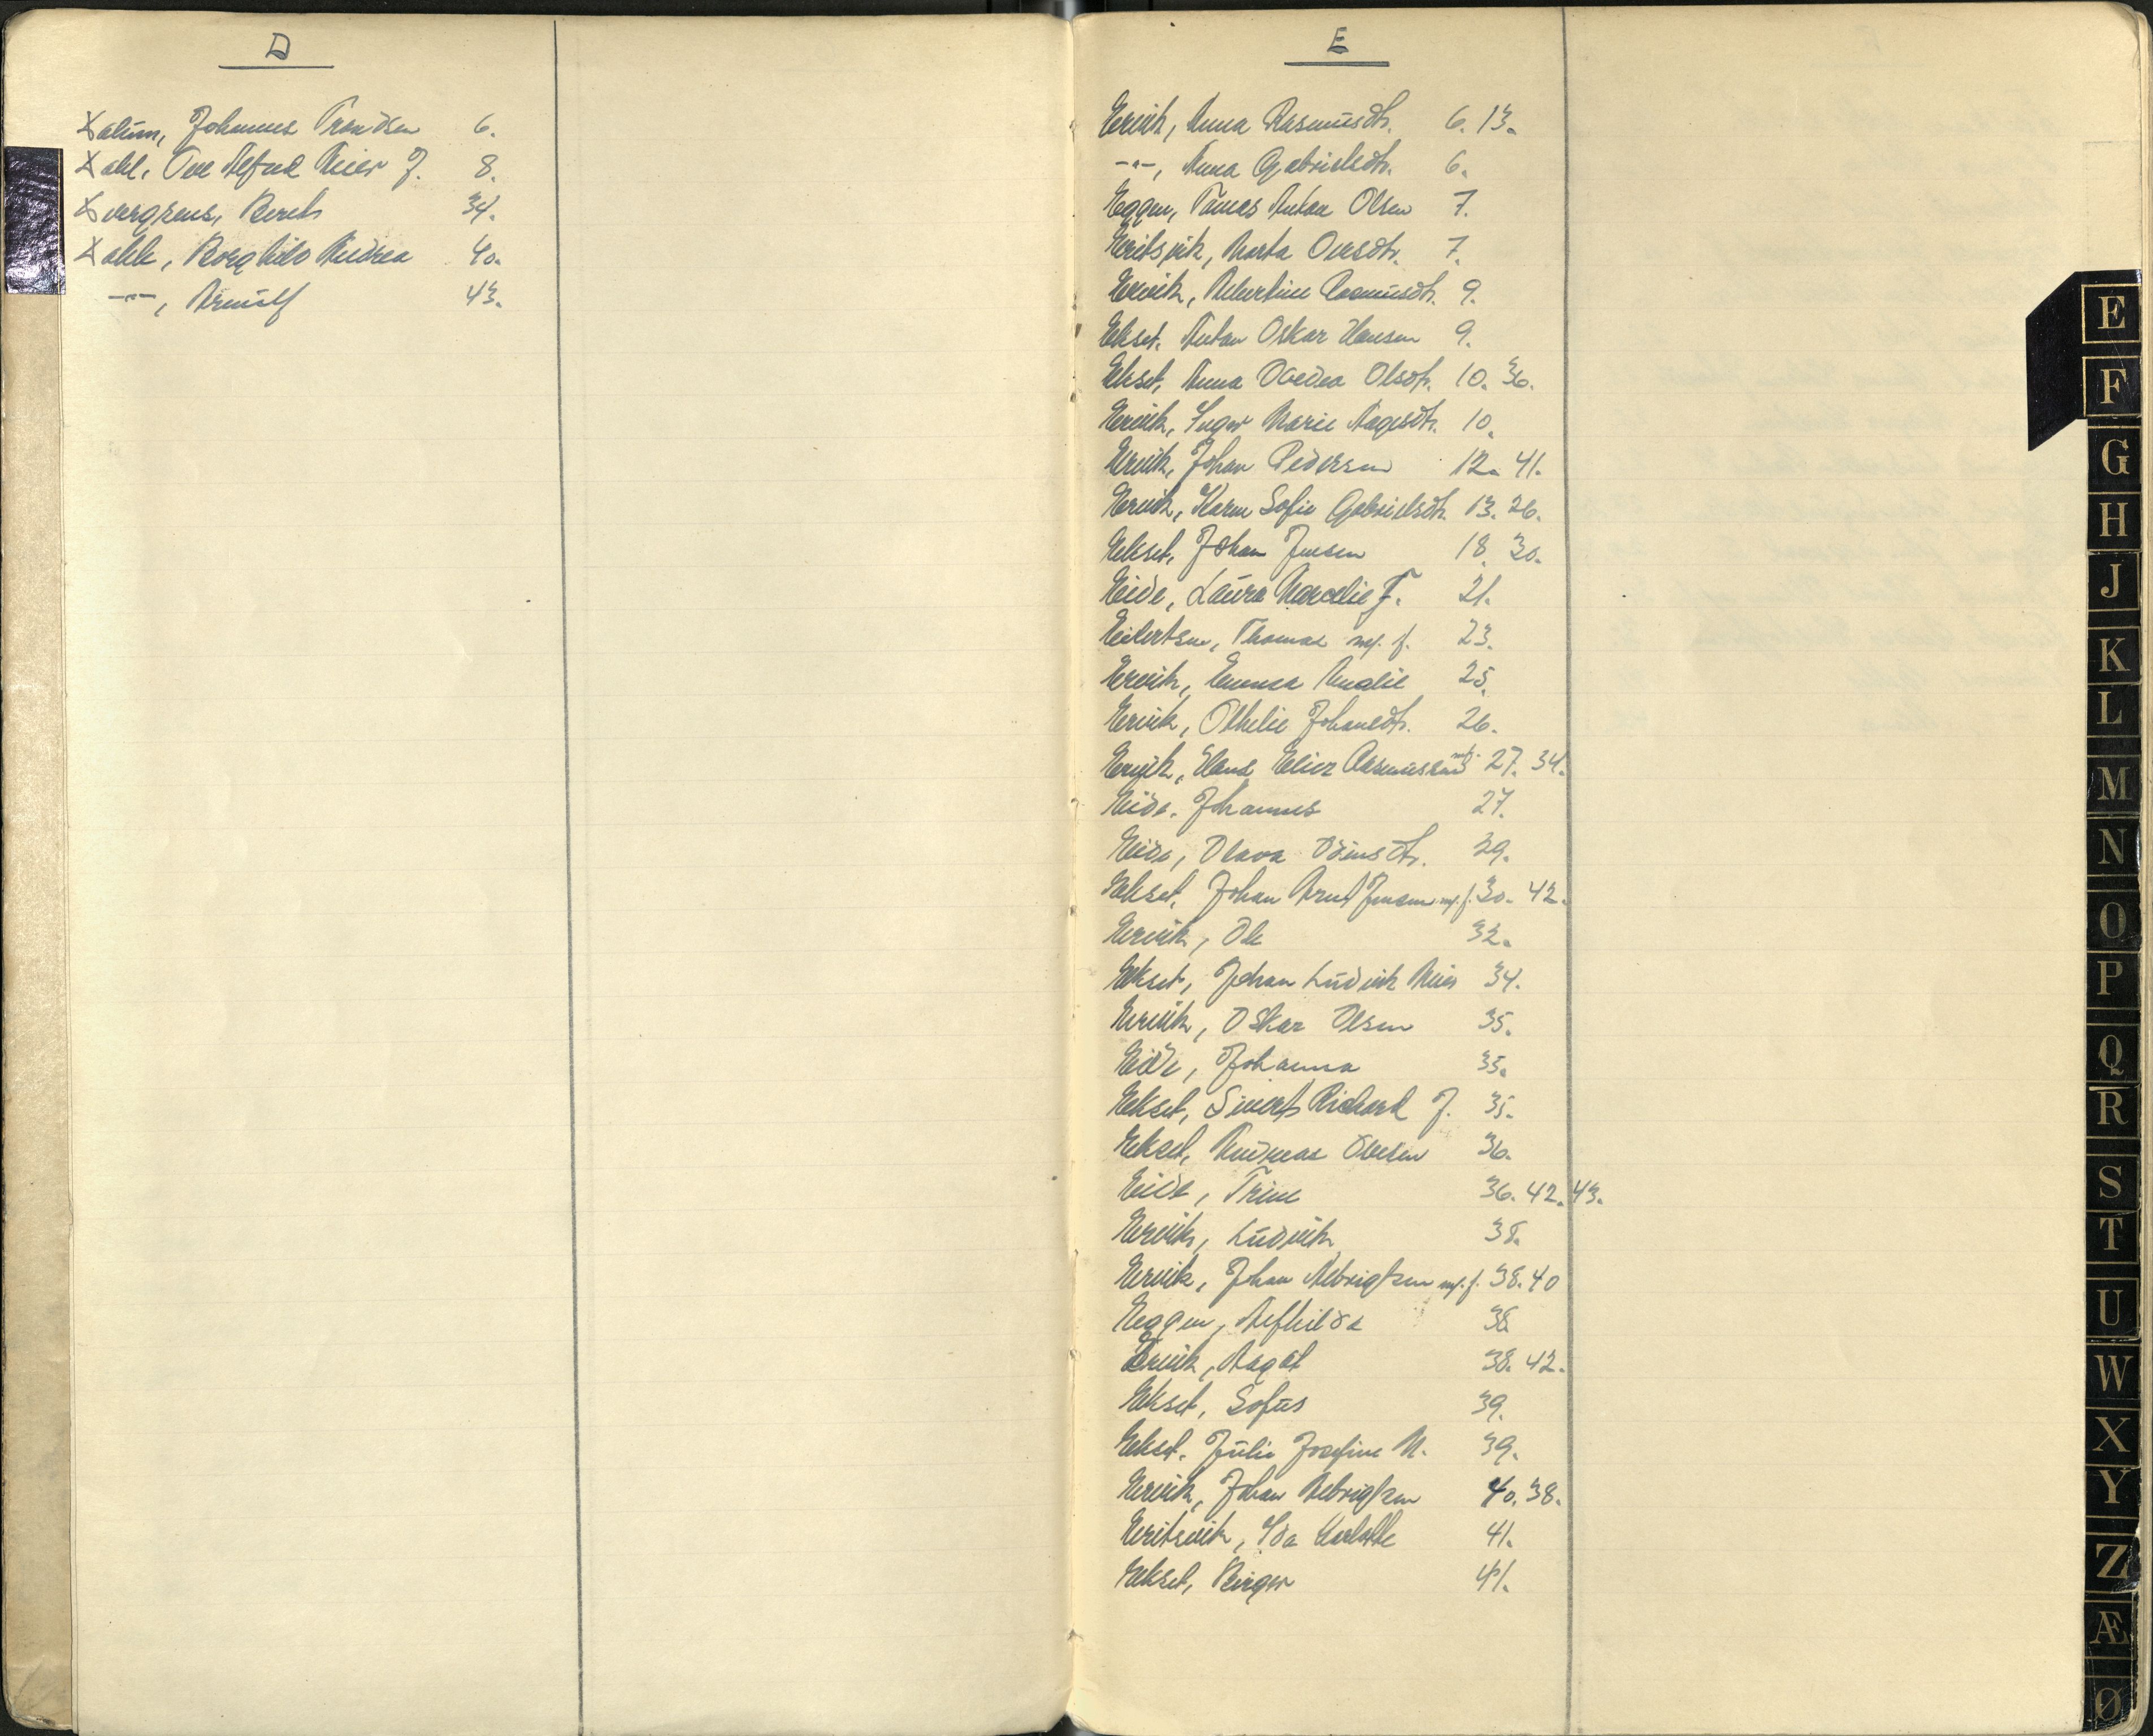 D
Dalum, Johannes Trondsen 6.
Dahl, Ove Alfred Meier J. 8.
Dvergsnes, Berit 34.
Dahle, Borghild Andrea 40.
-"-, Arnulf 43.
E
Ervik, Anna Rasmusdtr. 6. 13.
-"-, Anna Gabrielsdtr. 6.
Eggen, Tomas Anton Olsen 7.
Eritsvik, Marta Olesdtr. 7.
Ervik, Albertine Rasmusdtr. 9.
Ekset, Anton Oskar Hansen 9.
Ekset, Anna Ovedea Olsdtr. 10. 36.
Ervik, Inger Marie Aagesdtr. 10.
Ervik, Johan Pedersen 12. 41.
Ervik, Karen Sofie Gabrielsdtr. 13. 26.
Ekset, Johan Jensen 18. 30.
Eide, Laura Marcelie F. 21.
Eilertsen, Thomas mf. f. 23.
Ervik, Emma Amalie 25.
Ervik, Othelie Johansdtr. 26.
Ervik, Hans Elier Rasmussen mf. 27. 34.
Eide, Johannes 27.
Eide, Olava Odinsdtr. 29.
Ekset, Johan Arnt Jensen mf. f. 30. 42.
Ervik, Ole 32.
Ekset, Johan Ludvik Meier 34.
Ervik, Oskar Olsen 35.
Eide, Johanna 35.
Ekset, Sivert Richard J. 35.
Ekset, Andreas Olesen 36.
Eide, Trine 36. 42. 43.
Ervik, Ludvik 38.
Ervik, Johan Albrigtsen mf. f. 38. 40
Eggen, Alfhilda 38
Ervik, Aagot 38. 42.
Ekset, Sofus 39.
Ekset, Julie Josefine M. 39.
Ervik, Johan Albrigtsen 40. 38.
Eritsvik, Ida Charlotte 41.
Ekset, Birger 41.
E
F
G
H
J
K
L
M
N
O
P
Q
R
S
T
U
W
X
Y
Z
Æ
Ø